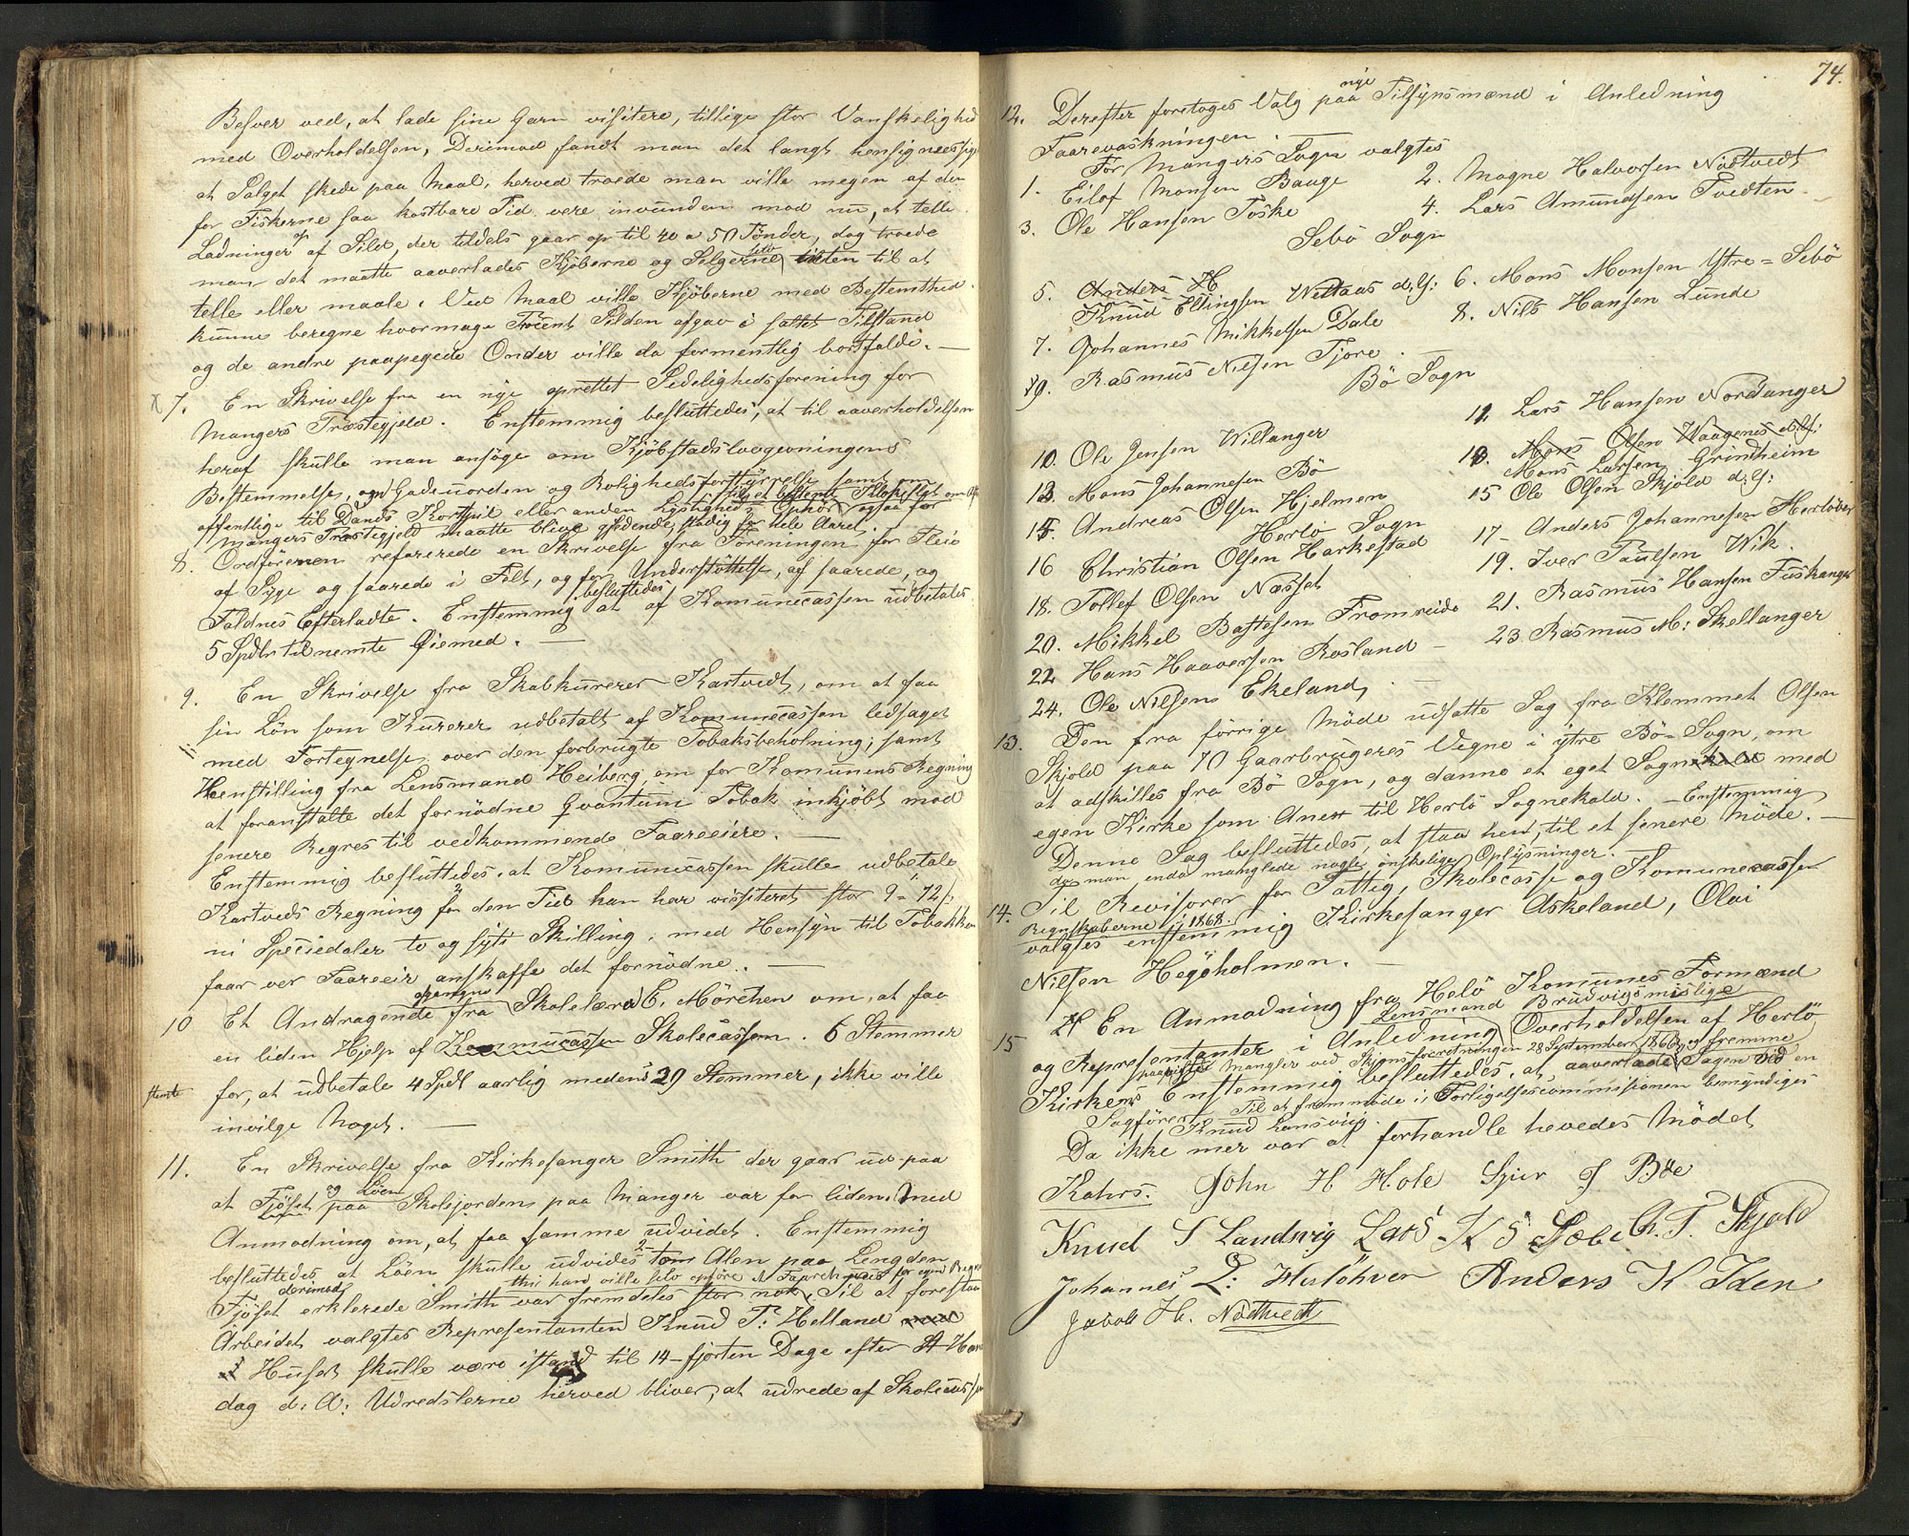 Besver ved, at lade sine Garn visitere, tillige stor Vanskelighed
med Overholdelsen, Derimod fandt man det langt hensigneessigt
at Salget skede paa Maal, herved troede man ville megen af den
for Fiskerne saa kostbare Tid vere invunden mod nu, at telle
Ladninger op af Sild, der tildels gaar op til 40 a 50 Tönder, dog troede
man det maatte aaverlades Kjöberne og Selgerne selv til at
telle eller maale. Ved Maal ville Kjöberne med Bestemthed
kunne beregne hvormage Procent Silden afgav i saltet Tilstand
og de andre paapegede Onder ville da formentlig bortfalde. —
7. En Skrivelse fra en nye oprettet Sedelighedsforening for
Mangers Præstegjeld. Enstemmig besluttedes, at til aaverholdelsen
heraf skulle man ansöge om Kjöbstadslovgivningens
Bestemmelse, om Gadeuorden og Rolighedsforstyrrelse samt
offentlige til Dands Kortspil eller anden Lystighed Ophör ogsaa for
Mangers Præstegjeld maatte blive gjeldende stadig for hele Aaret.
8. Ordföreren refererede en Skrivelse fra Foreningen for Pleie
af Syge og saarede i Felt, og for Understöttelse, af saarede, og
Faldnes Efterladte. Enstemmig besluttedes at af Komunecassen udbetales
5 Spdlr til nemte Öiemed. —
9. En Skrivelse fra Skabkurerer Kartvedt, om at faa
sin Lön som Kurerer udbetalt af Komunecassen ledsaget
med Fortegnelse over den forbrugte Tobaksbeholning; samt
Henstilling fra Lensmand Heiberg, om for Komunens Regning
at foranstalte det fornödne Qvantum Tobak inkjöbt mod
senere Regres til vedkommende Faareeiere. —
Enstemmig besluttedes, at Komunecassen skulle udbetale
Kartveds Regning for den Tid han har vissiteret stor 9 - 72 s:
ni Speciedaler to og sytti Skilling, med Hensyn til Tobakken
faar ver Faareeier anskaffe det fornödne. —
10 Et Andragende fra Skolelærer E. Mörchen om, at faa
en liden Hjelp af Kommucassen Skolecassen. 6 Stemmer
stemte for, at udbetale 4 Spdl aarlig medens 29 Stemmer, ikke ville
invilge Noget. —
11. En Skrivelse fra Kirkesanger Smith der gaar ud paa
at Fjöset og Löen paa Skolejorden paa Manger var for liden, med
Anmodning om, at faa samme udvidet. Enstemmig
besluttedes at Löen skulle udvides 2 Alen paa Lengden
thi hand ville selv opföre
Fjöset derimod erklerede Smith var fremdeles stor nok, Til at forestaa
Arbeidet valgtes Representanten Knud T: Helland
Huset skulle være istand til 14 - fjorten Dage efter
dag d: A: Udredslerne herved bliver, at udrede af Skolecassen
74.
12. Derefter foretoges Valg paa nye Tilsynsmænd i Anledning
Faarevaskningen. —
For Mangers Sogn valgtes
1. Eilof Monsen Bauge 2. Magne Halvorsen Nödtvedt
3. Ole Hansen Toske 4. Lars Amundsen Tvedten
Sebö Sogn
5. Anders H
Knud Ellingsen Wettaas d: G: 6. Mons Monsen Ytre - Sebö
7. Johannes Mikkelsen Dale 8. Nils Hansen Lunde
9. Rasmus Nilsen Tjore. —
Bö Sogn
10. Ole Jensen Willanger 11. Lars Hansen Nordanger
12. Mons Johannesen Bö 13. Mons Olsen Waagenes d: G:
Mons Larsen Grindheim
14. Andreas Olsen Hjelmen 15 Ole Olsen Skjold d: G:
Herlö Sogn
16 Christian Olsen Harkestad 17 - Anders Johannesen Herlöver
18. Tollef Olsen Næsset 19. Iver Paulsen Wik
20. Mikkel Bastesen Fromreide 21. Rasmus Hansen Fuskanger
22 Hans Haaversen Rosland - 23. Rasmus M: Skellanger
24. Ole Nilsens Ekeland, —
13. Den fra förrige Möde udsatte Sag fra Klemmet Olsen
Skjold paa 70 Gaarbrugeres Vegne i ytre Bö - Sogn, om
at adskilles fra Bö Sogn, og danne et eget Sogn med
egen Kirke som Anex til Herlö Sognekald. — Enstemmig
Denne Sag besluttedes, at staa hen, til et senere Möde. —
da man enda manglede nogle önskelige Oplysninger.
14. Til Revisorer for Fattig, Skolecasse og Komunecassen
Regnskaberne i 1868.
valgtes enstemmig Kirkesanger Askeland, Olai
Nilsen Hegöholmen. —
15 En Anmodning fra Helö Komunes Formænd
Lensmand Brudvigs mislige
og Representanter i Anledning Overholdelsen af Herlö
paapegte Mangler ved Skjönsforretningen 28 September 1866, og fremme
Kirkens Enstemmig besluttedes, at aaverlade Sagen ved en
Sagförer. Til at fremmöde i Forligelsescommissionen bemyndiges
Knud Landsvig.
Da ikke mer var at forhandle hevedes Mödet
Kahrs. John H Hole Sjur J Böe
Knud S Landsvig Lars K S Sæbö Ch. T. Skjold
Johannes L: Husöhver Anders K Iden
Jacob H. Nödtvedt